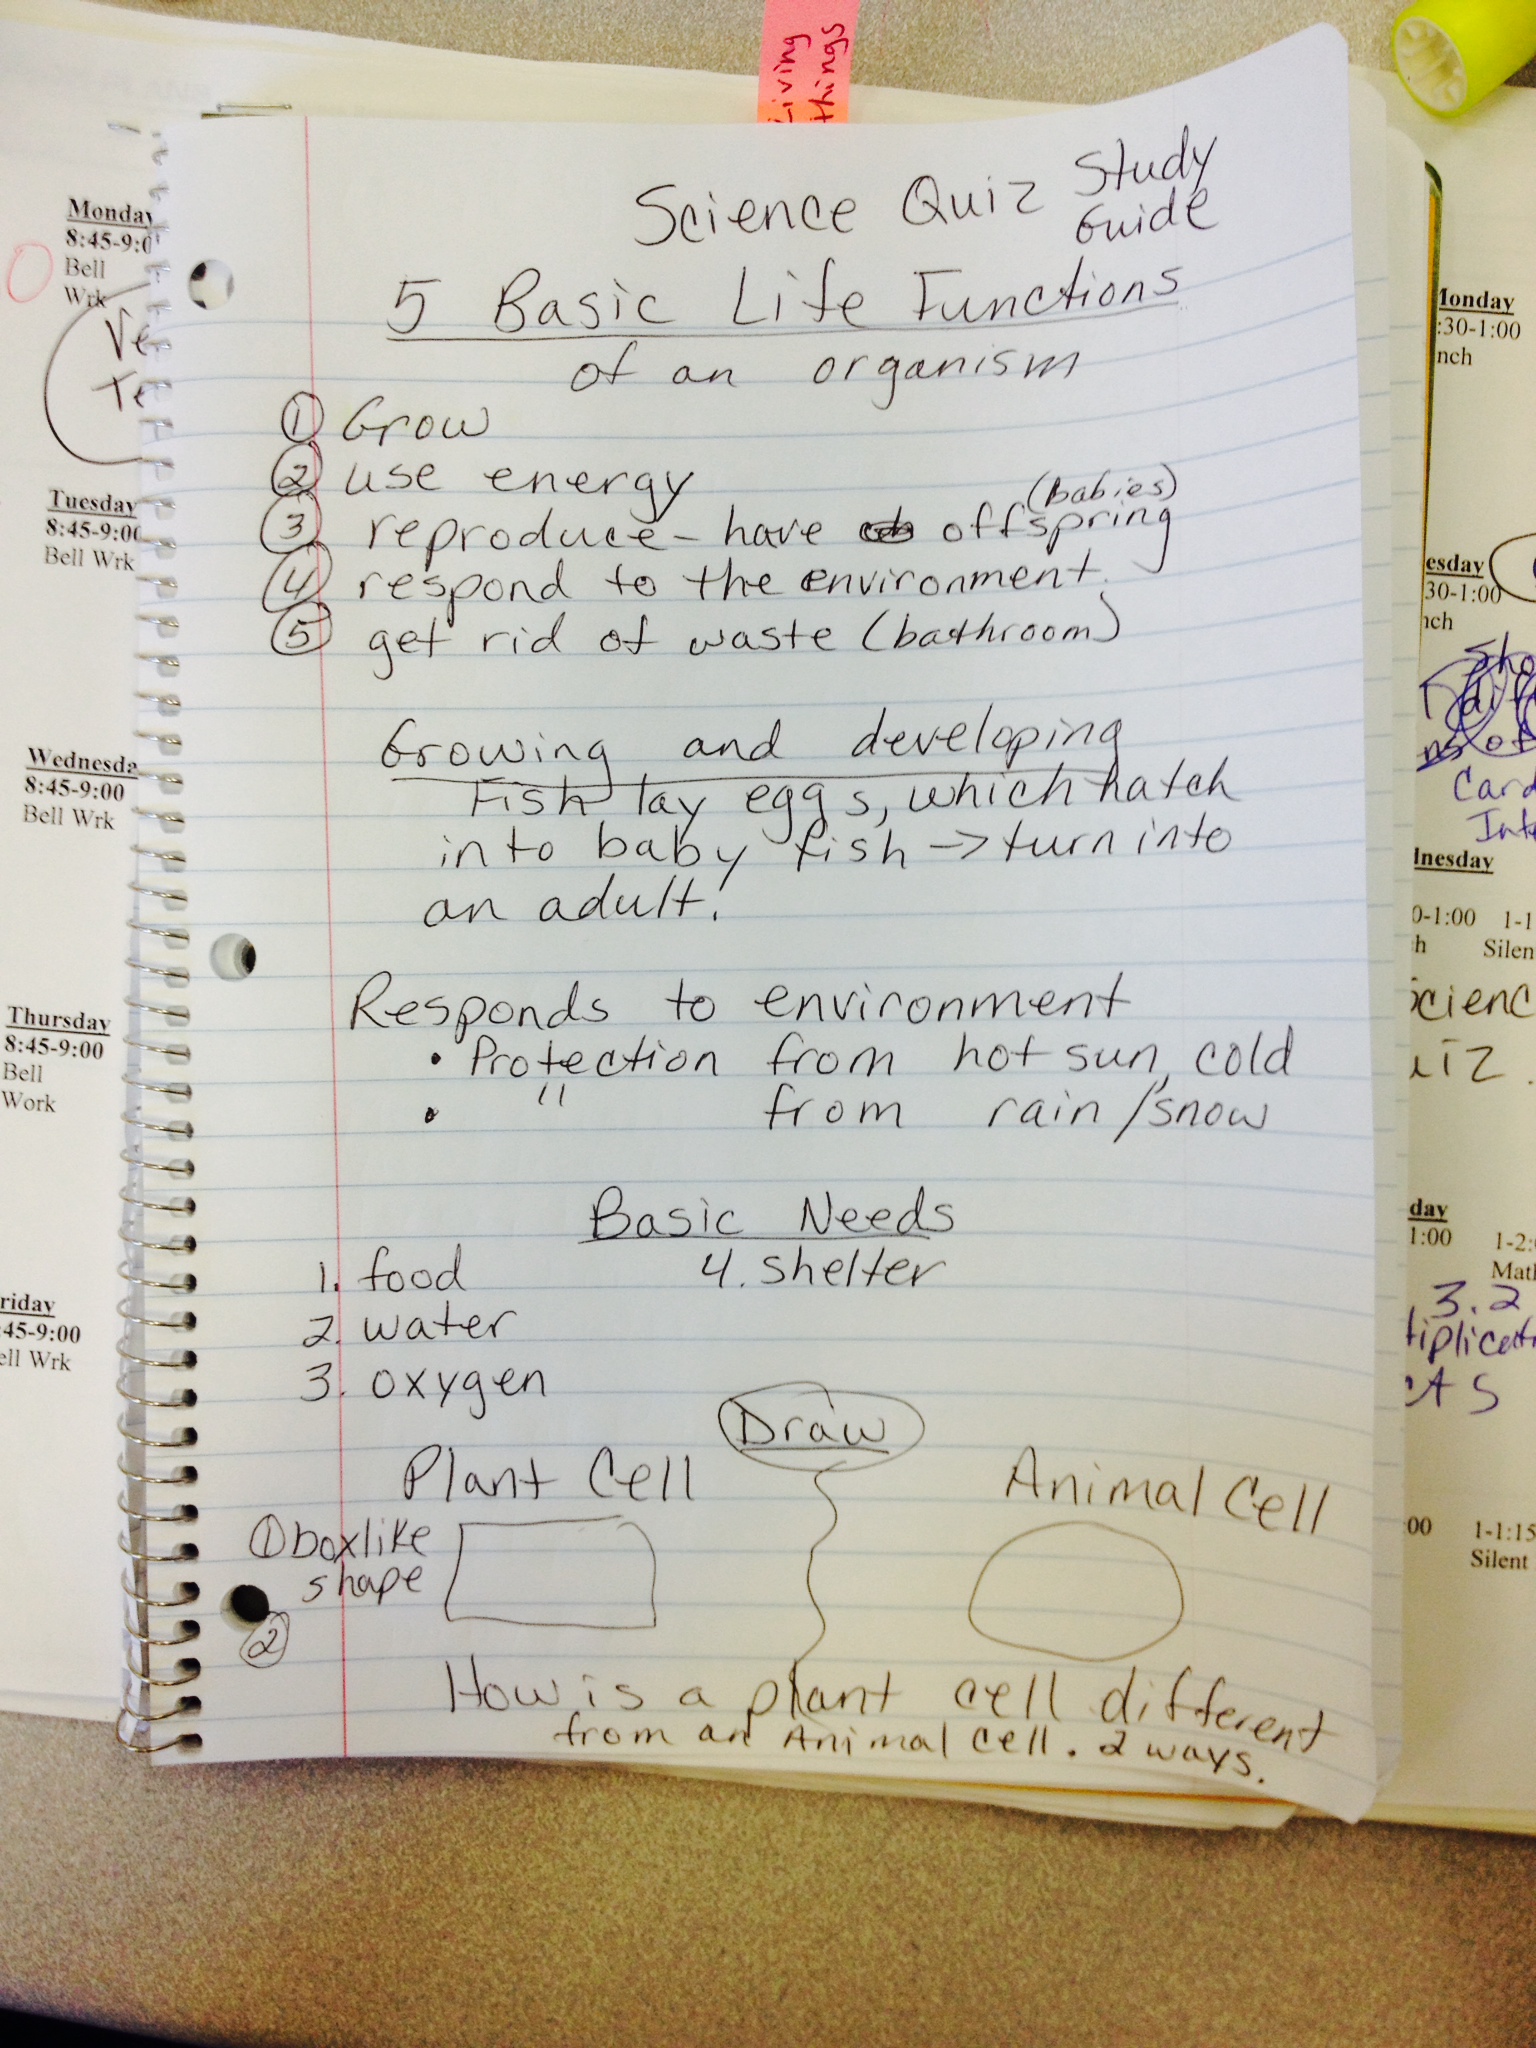 Living
things
Science Quiz Study
Guide
5 Basic Life Functions
of an organism
① Grow
② use energy
(babies)
③ reproduce - have offspring
④ respond to the environment.
⑤ get rid of waste (bathroom)
Growing and developing
Fish lay eggs, which hatch
into baby fish -> turn into
an adult!
Responds to environment
• Protection from hot sun, cold
• " from rain/snow
Basic Needs
1. food 4. shelter
2. water
3. oxygen
Draw
Plant Cell Animal Cell
① boxlike
shape
②
How is a plant cell different
from an Animal cell. 2 ways.
Monday
8:45-9:0
Bell
Wrk
Tuesday
8:45-9:00
Bell Wrk
Wednesda
8:45-9:00
Bell Wrk
Thursday
8:45-9:00
Bell
Work
riday
:45-9:00
ell Wrk
Monday
:30-1:00
nch
esday
30-1:00
nch
Card
Int
dnesday
0-1:00 1-1
h Silen
Scienc
uiz.
day
1:00 1-2:
Mat
3.2
tiplicat
:00 1-1:15
Silent